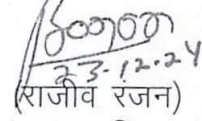 23-12-24
(राजीव रंजन)